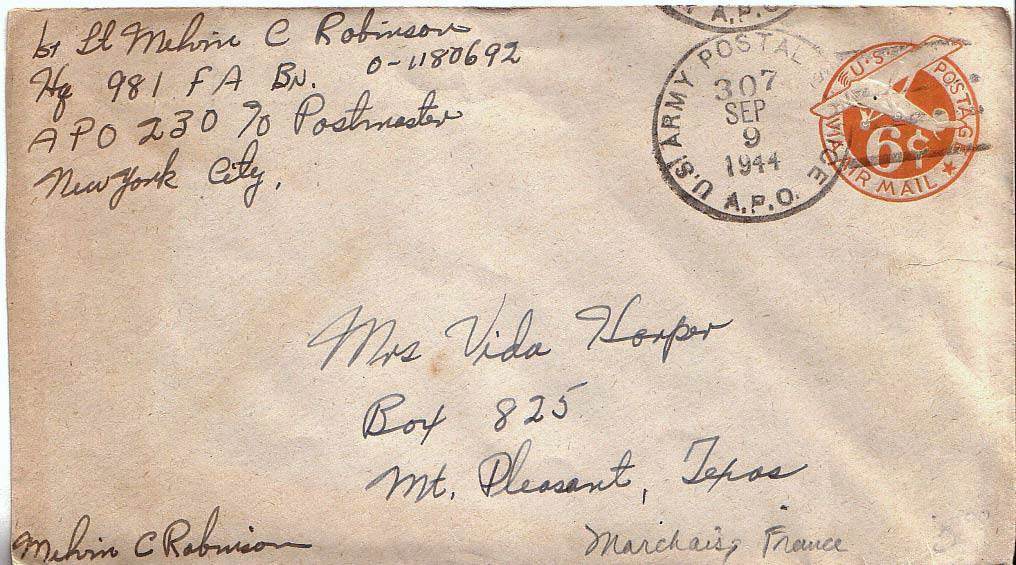 1st Lt Melvin C Robinson
Hq 981 F A Bn. O-1180692
APO 230 % Postmaster
New York City,
A.P.O.
U.S. ARMY POSTAL SERVICE
307
SEP
9
1944
A.P.O.
U.S. POSTAGE
6¢
VIA AIR MAIL
Mrs Vida Harper
Box 825
Mt. Pleasant, Texas
Melvin C Robinson
Marchais, France